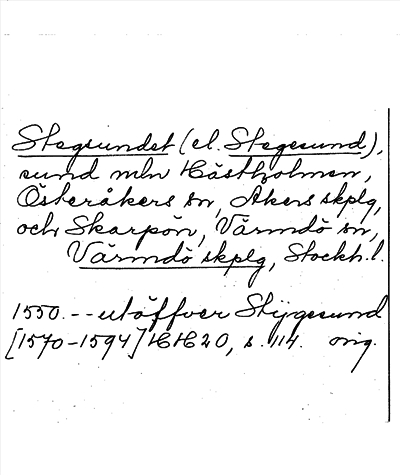 Stegsundet (el. Stegesund),
sund mln Hästholmen,
Österåkers sn, Åkers skplg,
och Skarpön, Värmdö sn,
Värmdö skplg, Stockh. l.
1550. -- utöffver Stÿgesund
[1570-1594] HH 20, s. 114. orig.